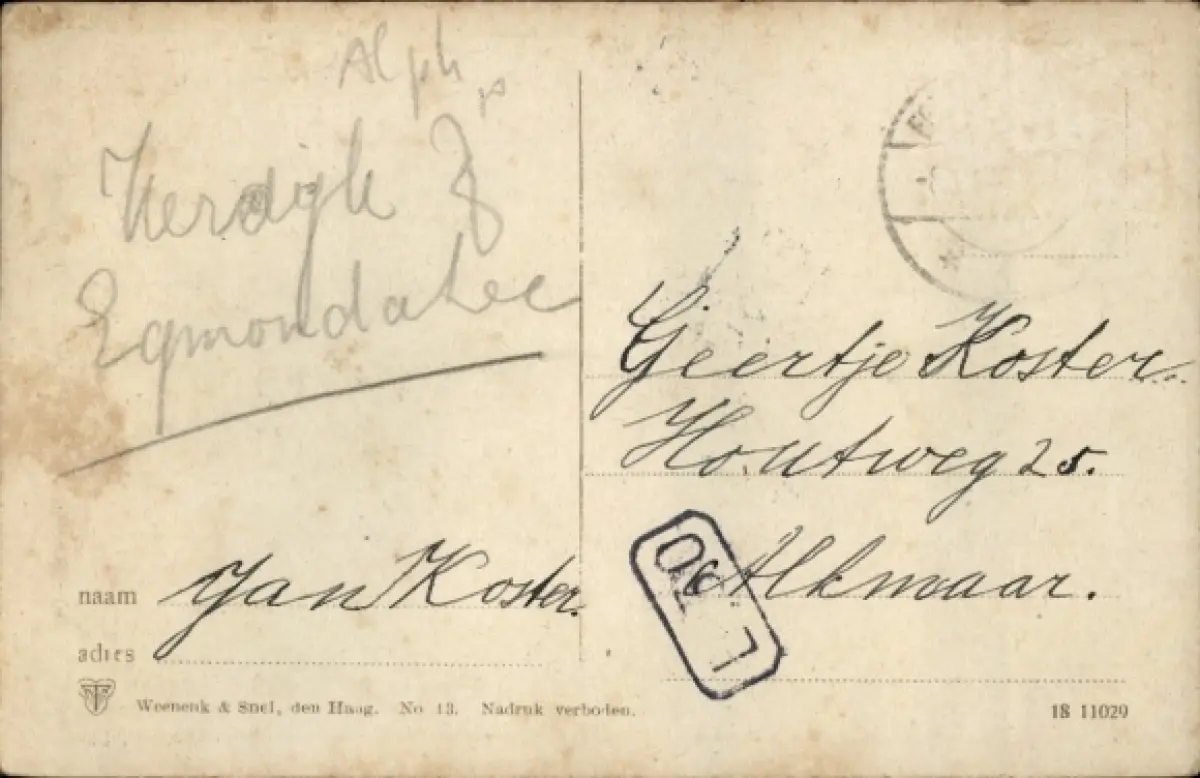 Alph
Kerdijk &
Egmondahee
Geertje Koster.
Houtweg 25.
Alkmaar.
naam Jan Koster.
adres
Weenenk & Snel, den Haag. No 13. Nadruk verboden.
18 11029